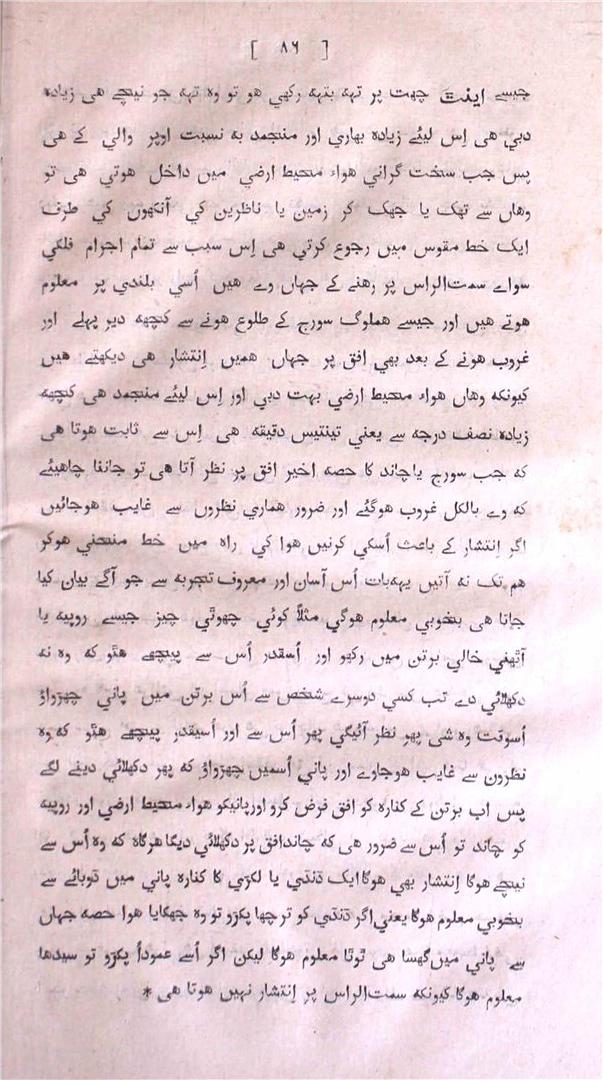 [ ٨٦ ]
جیسے اینٹ چھت پر تہہ بتہہ رکھی ہو تو وہ تہہ جو نیچے ہی زیادہ
دبی ہی اِس لیئے زیادہ بھاری اور منجمد بہ نسبت اوپر والی کے ہی
پس جب سخت گرانی ہواء محیط ارضی میں داخل ہوتی ہی تو
وہاں سے تھک یا جھک کر زمین یا ناظرین کی آنکھوں کی طرف
ایک خط مقوس میں رجوع کرتی ہی اِس سبب سے تمام اجرام فلکی
سواے سمت‌الراس پر رہنے کے جہاں وے ہیں اُسی بلندی پر معلوم
ہوتے ہیں اور جیسے ہملوگ سورج کے طلوع ہونے سے کچھہ دیر پہلے اور
غروب ہونے کے بعد بھی افق پر جہاں ہمیں اِنتشار ہی دیکھتے ہیں
کیونکہ وہاں ہواء محیط ارضی بہت دبی اور اِس لیئے منجمد ہی کچھہ
زیادہ نصف درجہ سے یعنی تینتیس دقیقہ ہی اِس سے ثابت ہوتا ہی
کہ جب سورج یاچاند کا حصہ اخیر افق پر نظر آتا ہی تو جاننا چاہیئے
کہ وے بالکل غروب ہوگئے اور ضرور ہماری نظروں سے غایب ہوجائیں
اگر اِنتشار کے باعث اُسکی کرنیں ہوا کی راہ میں خط منحنی ہوکر
ہم تک نہ آتیں یہہ‌بات اُس آسان اور معروف تجربہ سے جو آگے بیان کیا
جاتا ہی بخوبی معلوم ہوگی مثلاً کوئی چھوٹی چیز جیسے روپیہ یا
آٹھنی خالی برتن میں رکھو اور اُسقدر اُس سے پیچھے ہٹو کہ وہ نہ
دکھلائی دے تب کسی دوسرے شخص سے اُس برتن میں پانی چھڑواؤ
اُسوقت وہ شی پھر نظر آئیگی پھر اُس سے اور اُسیقدر پیچھے ہٹو کہ وہ
نظرون سے غایب ہوجاوے اور پانی اُسمیں چھڑواؤ کہ پھر دکھلائی دینے لگے
پس اب برتن کے کنارہ کو افق فرض کرو اورپانیکو ہواء محیط ارضی اور روپیہ
کو چاند تو اُس سے ضرور ہی کہ چاندافق پر دکھلائی دیگا ہرگاہ کہ وہ اُس سے
نیچے ہوگا اِنتشار بھی ہوگا ایک ڈنڈی یا لکڑی کا کنارہ پانی میں ڈوبانے سے
بخوبی معلوم ہوگا یعنی اگر ڈنڈی کو ترچھا پکڑو تو وہ جھکایا ہوا حصہ جہاں
سے پانی میں گھسا ہی ٹوٹا معلوم ہوگا لیکن اگر اُسے عموداً پکڑو تو سیدھا
معلوم ہوگا کیونکہ سمت‌الراس پر اِنتشار نہیں ہوتا ہی *